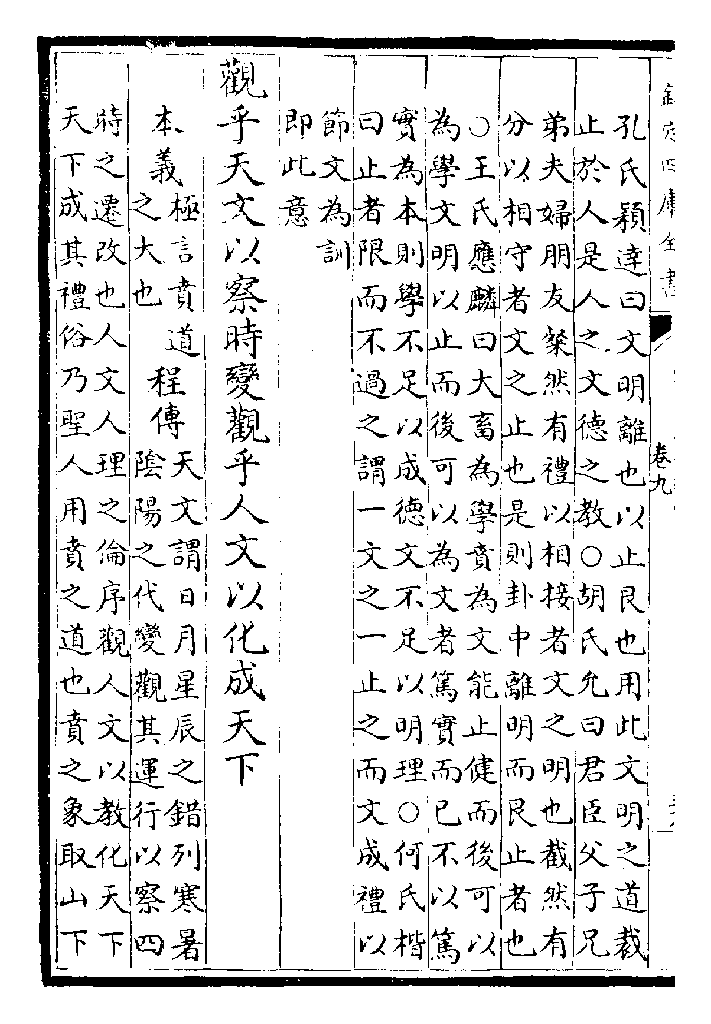 欽定四庫全書
卷九
孔氏穎達曰文明離也以止艮也用此文明之道裁
止於人是人之文德之教○胡氏允曰君臣父子兄
弟夫婦朋友粲然有禮以相接者文之明也截然有
分以相守者文之止也是則卦中離明而艮止者也
○王氏應麟曰大畜為學賁為文能止健而後可以
為學文明以止而後可以為文者篤實而已不以篤
實為本則學不足以成德文不足以明理○何氏楷
曰止者限而不過之謂一文之一止之而文成禮以
節文為訓
即此意
觀乎天文以察時變觀乎人文以化成天下
本義
極言賁道
之大也
程傳
天文謂日月星辰之錯列寒暑
陰陽之代變觀其運行以察四
時之遷改也人文人理之倫序觀人文以教化天下
天下成其禮俗乃聖人用賁之道也賁之象取山下